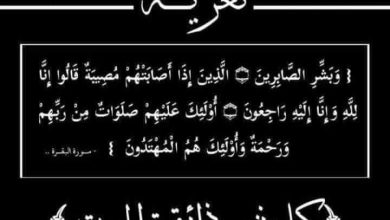 تعزية
﴿ وَبَشِّرِ الصَّابِرِينَ ۝ الَّذِينَ إِذَا أَصَابَتْهُمْ مُصِيبَةٌ قَالُوا إِنَّا
لِلَّهِ وَإِنَّا إِلَيْهِ رَاجِعُونَ ۝ أُوْلَئِكَ عَلَيْهِمْ صَلَوَاتٌ مِنْ رَبِّهِمْ
وَرَحْمَةٌ وَأُوْلَئِكَ هُمُ الْمُهْتَدُونَ ﴾ - سورة البقرة ..
﴿ كل نفس ذائقة الموت ﴾